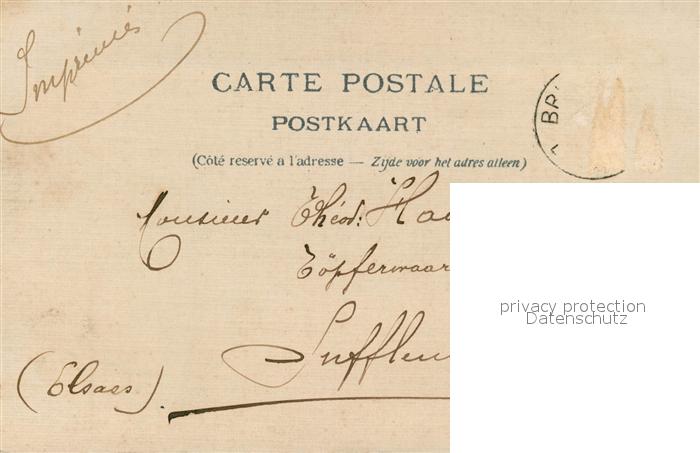 Imprimés
CARTE POSTALE
POSTKAART
(Côté reservé a l'adresse — Zijde voor het adres alleen)
BR
Monsieur Théod: Ha
Töpferwaar
Sufflen
(Elsass).
privacy protection
Datenschutz